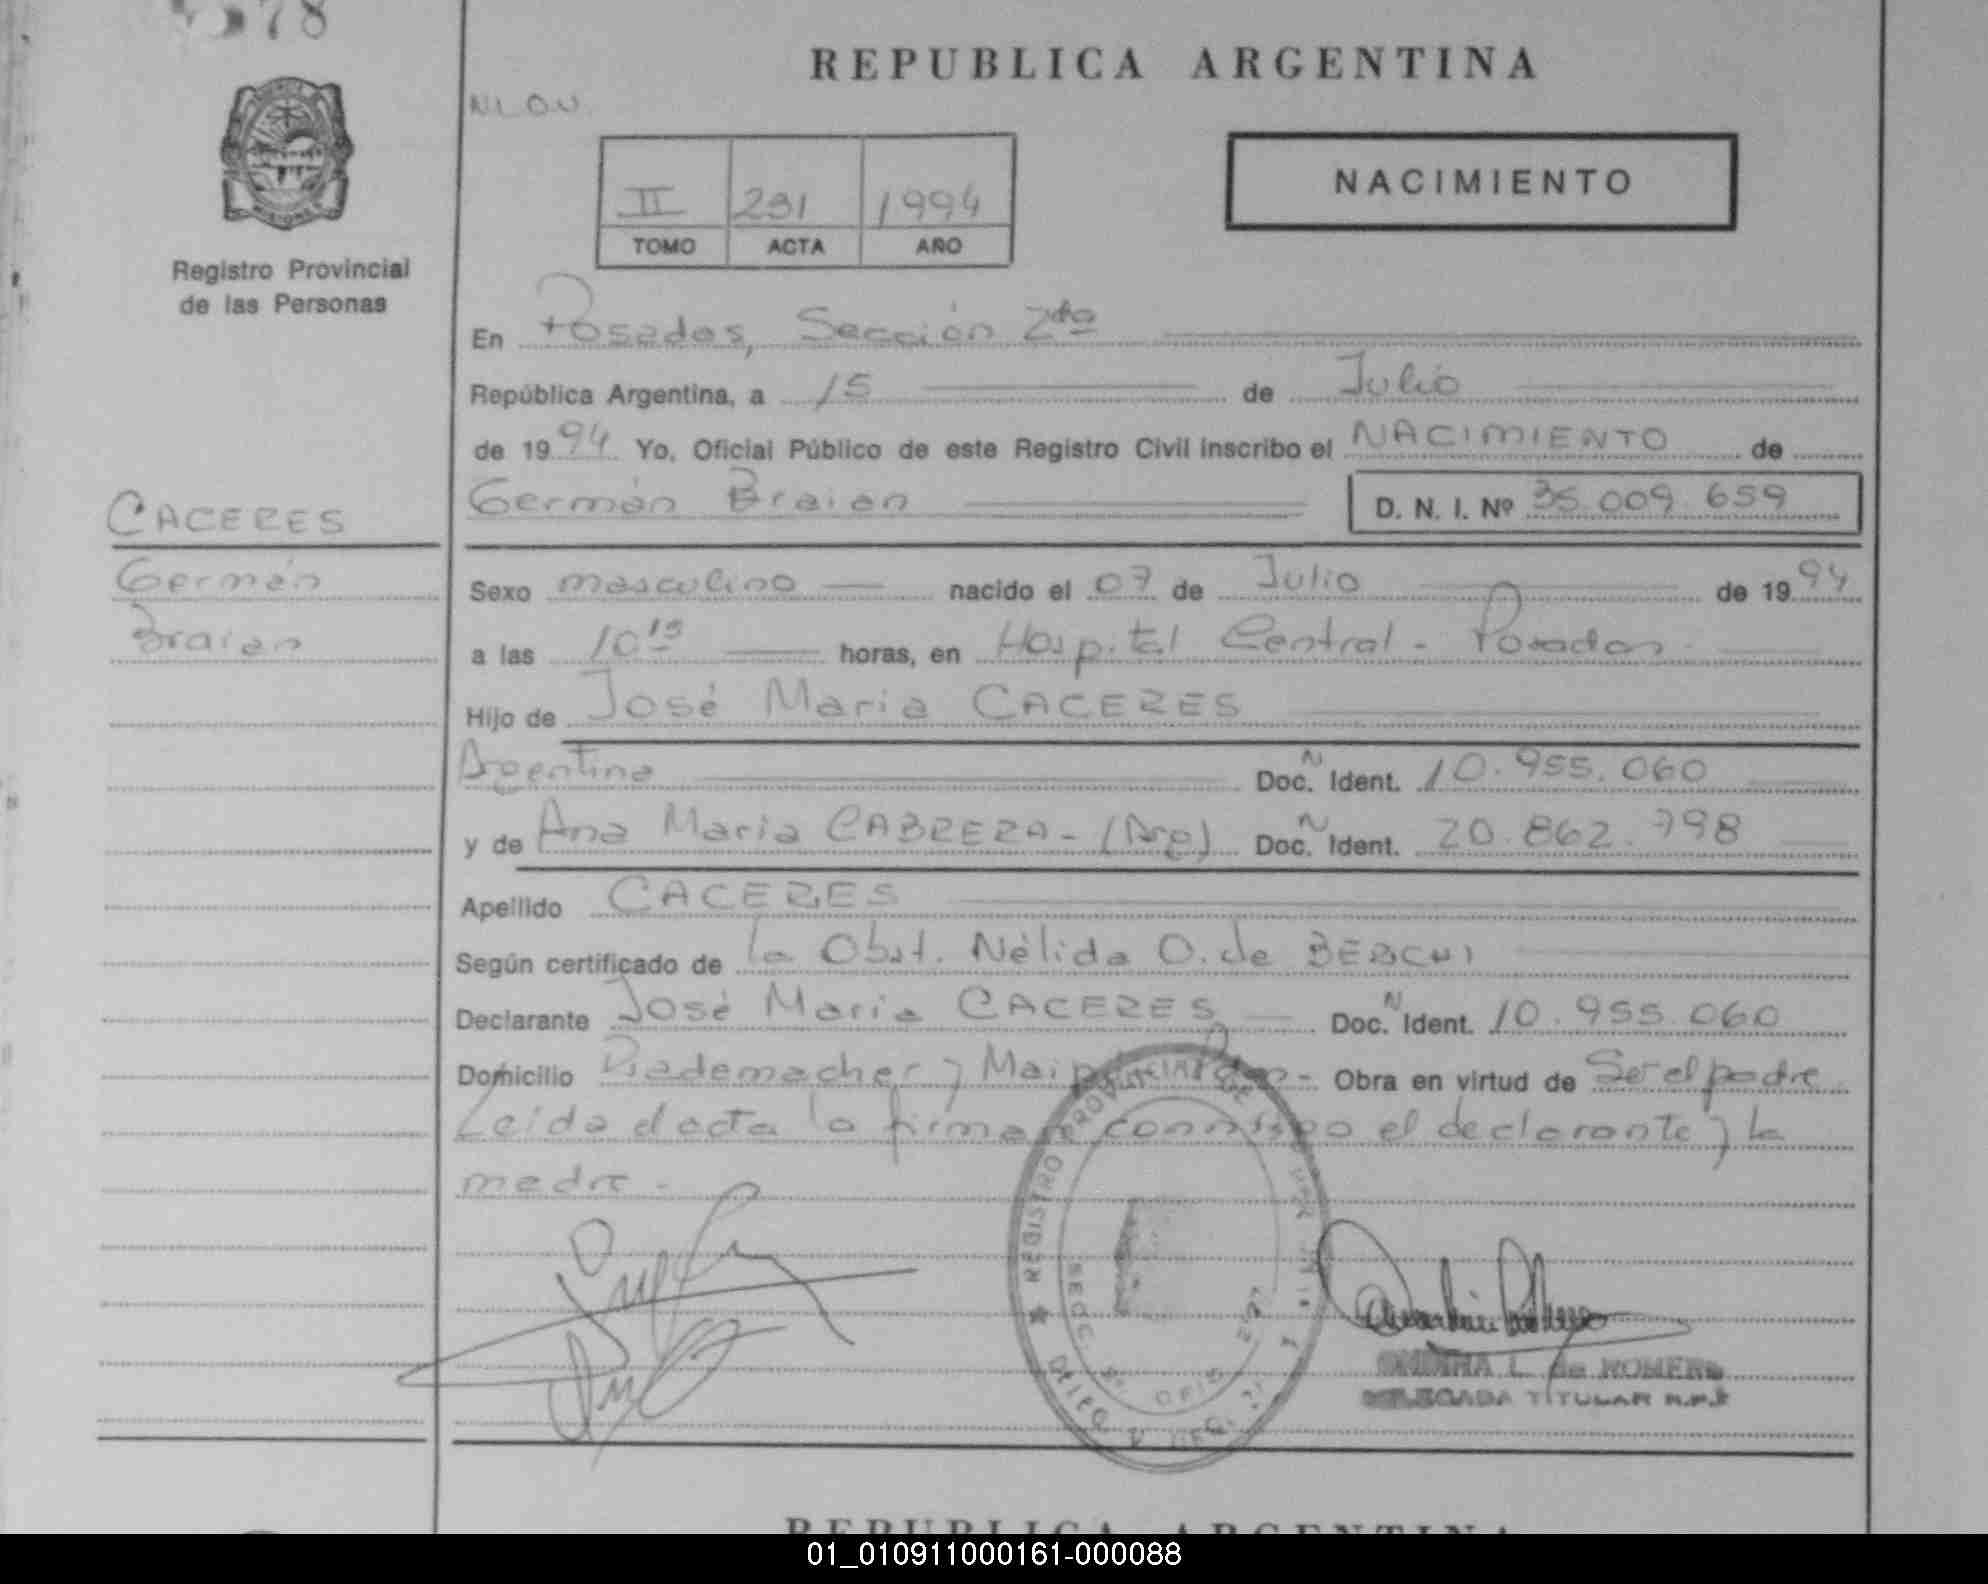 78
REPUBLICA ARGENTINA
NACIMIENTO
II 291 1994
TOMO ACTA AÑO
Registro Provincial
de las Personas
En Posadas, Sección 2da
República Argentina, a 15 de Julio
de 1994 Yo, Oficial Público de este Registro Civil inscribo el NACIMIENTO de
Germán Braian D. N. I. Nº 35.009.659
CACERES
Germán
Braian
Sexo masculino nacido el 07 de Julio de 1994
a las 10 15 horas, en Hospital Central - Posadas
Hijo de José Maria CACERES
Argentina Doc. N Ident. 10.955.060
y de Ana Maria CABRERA - (Arg) Doc. N Ident. 20.862.798
Apellido CACERES
Según certificado de la Obst. Nélida O. de
Declarante José Maria CACERES Doc. N Ident. 10.955.060
Domicilio Rademacher y Obra en virtud de Ser el padre
Leida el acta la firman conmigo el declarante y la
madre -
REGISTRO PROVINCIAL DE
SECC.
L. de ROMERO
DELEGADA TITULAR R.P.P.
REPUBLICA ARGENTINA
01_010911000161-000088